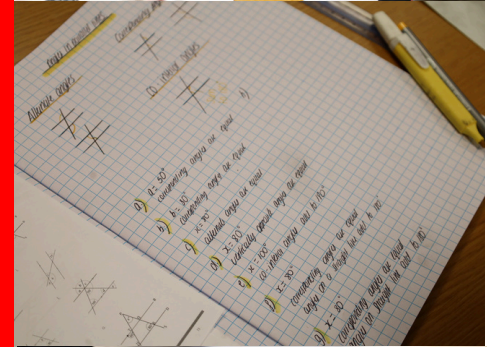 angles in parallel lines
Alternate angles
Corresponding
Co-interior angles
a) a = 50°
corresponding angles are equal
b) b = 30°
corresponding angles are equal
c) x = 70°
alternate angles are equal
d) x = 30°
vertically opposite angles are equal
e) x = 100°
co-interior angles add to 180°
f) x = 80°
corresponding angles are equal
angles on a straight line add to 180°
g) x = 80
corresponding angles are equal
angles on straight line add to 180
h)